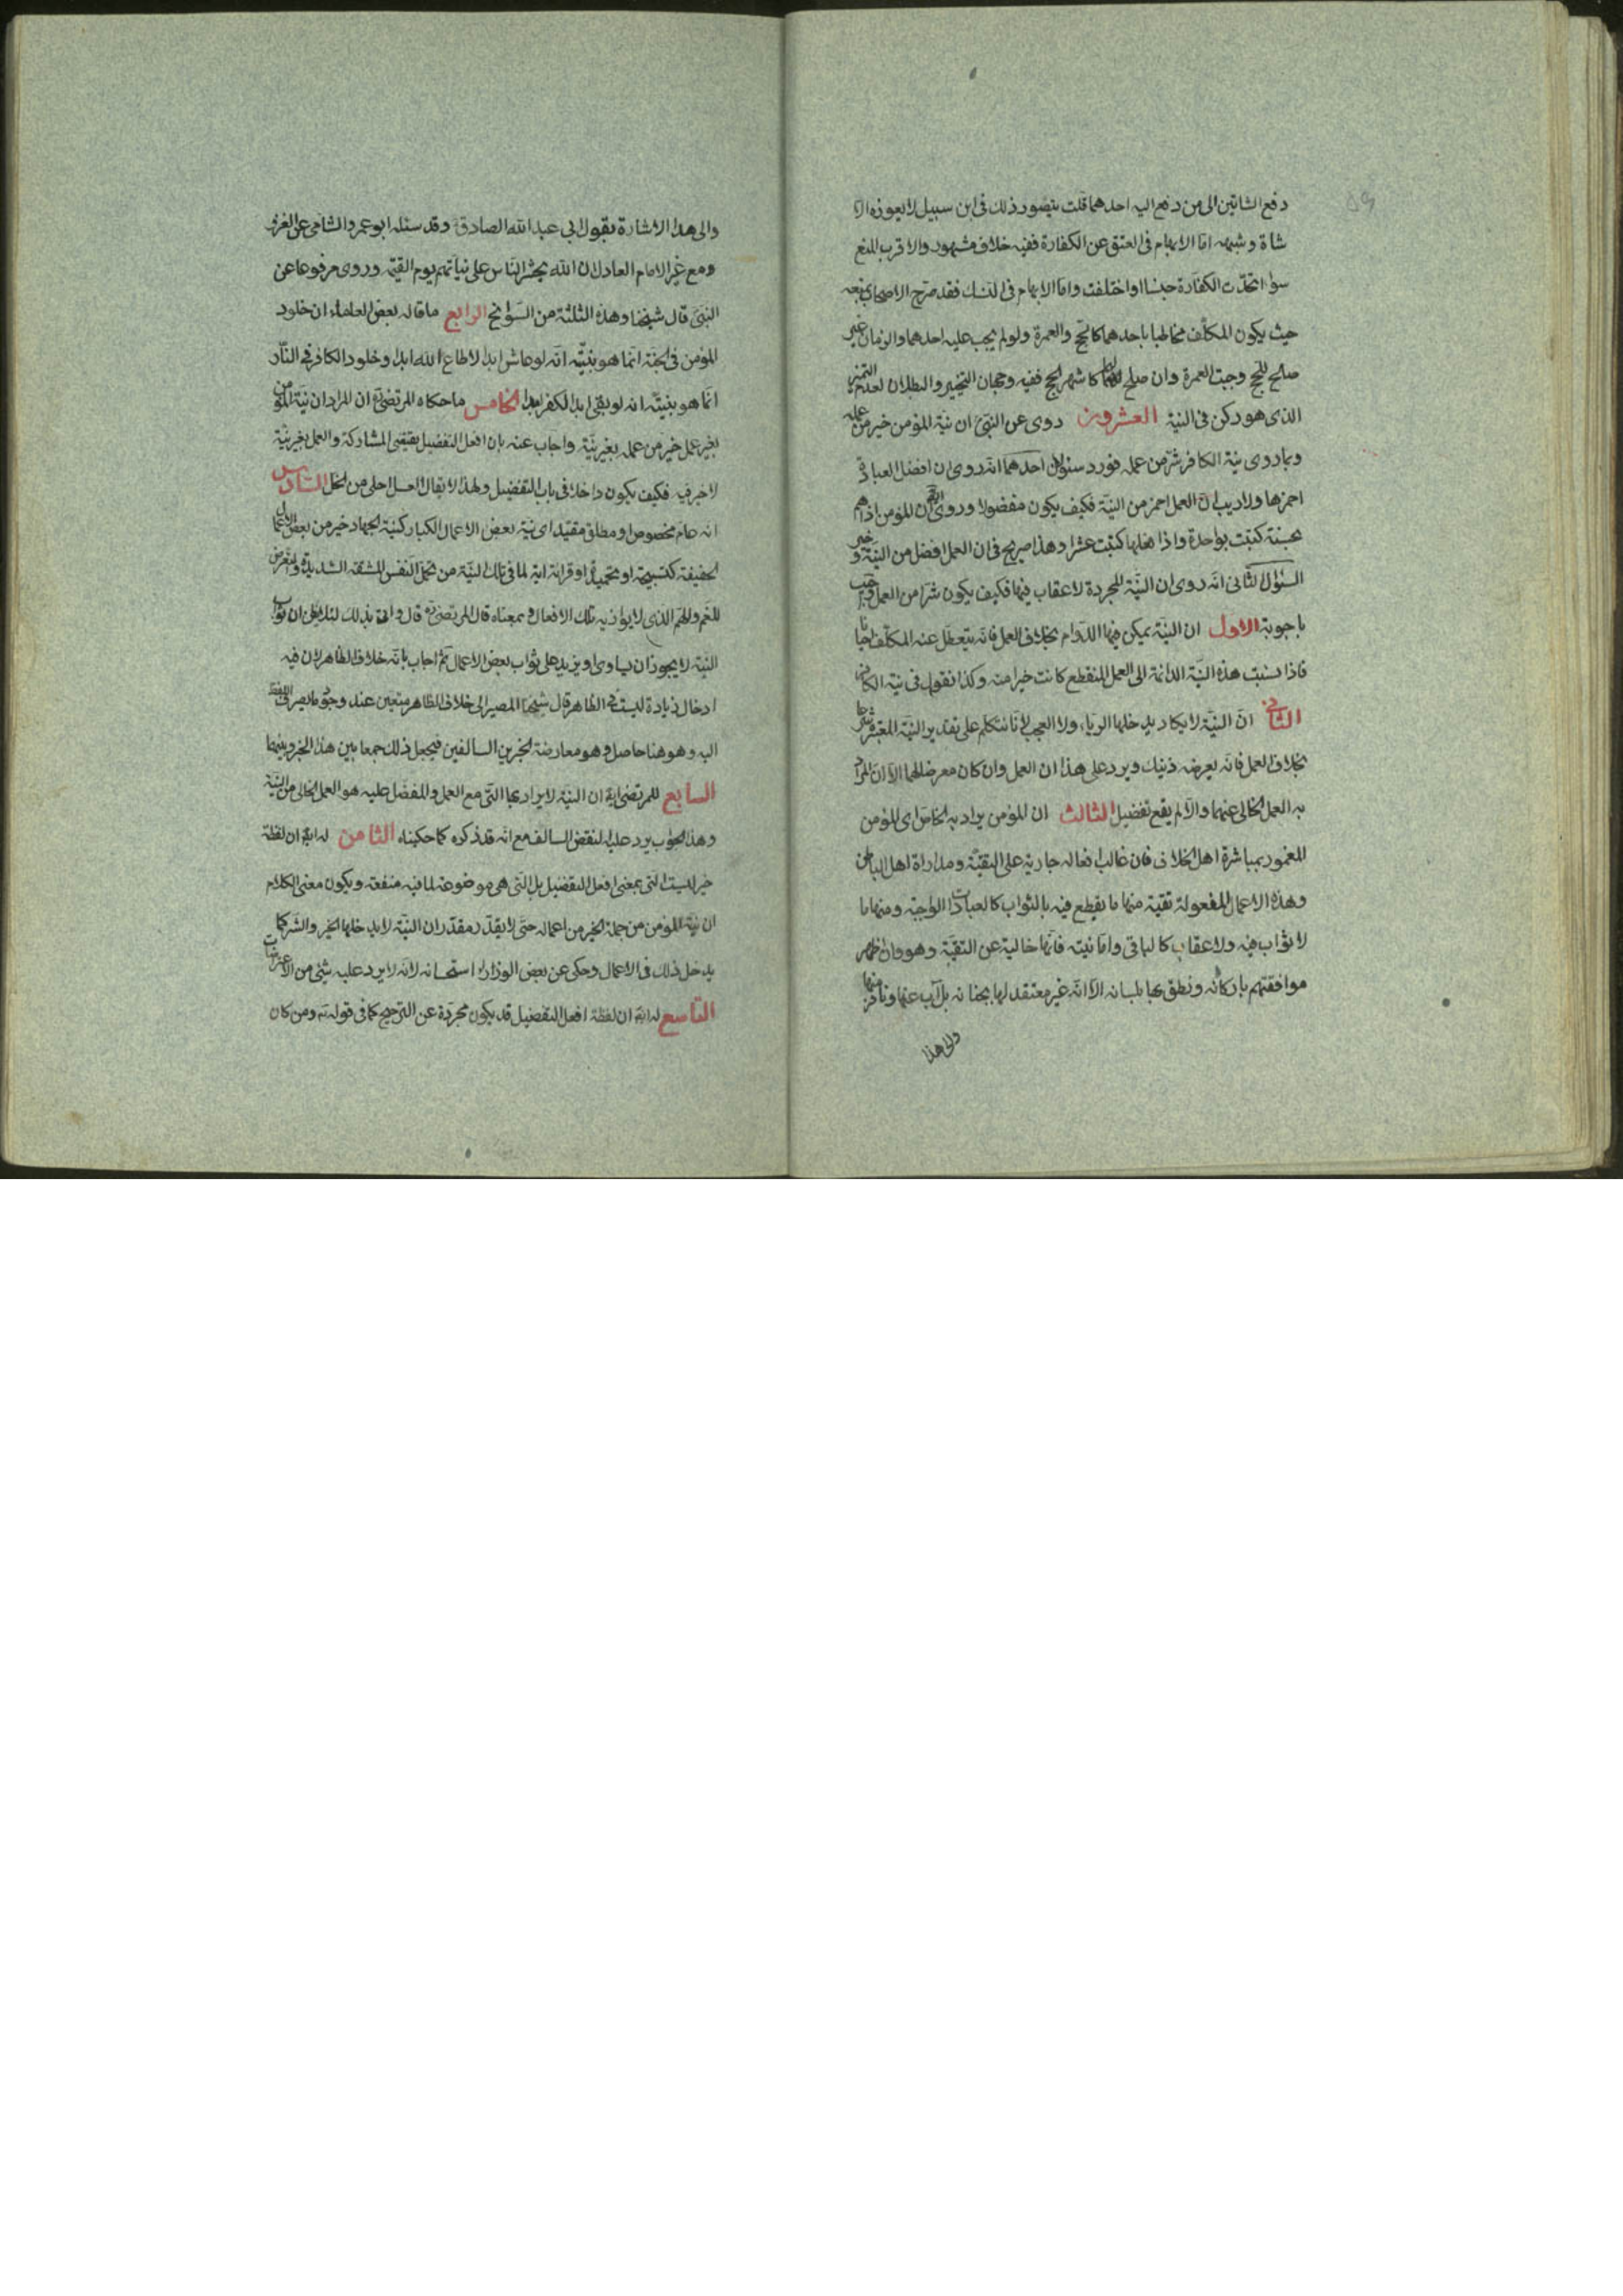 دفع الشاتين الى من دفع اليه احدهما قلت يتصور ذلك فى ابن سبيل لا يعوزه الا
شاة وشبهه امّا الابهام فى العتق عن الكفارة ففيه خلاف مشهور والاقرب المنع
سواء اتحدّت الكفارة جنسا او اختلفت وامّا الابهام فى النسك فقد صرّح الاصحاب بمنعه
حيث يكون المكلّف مخاطبا باحدهما كالحج والعمرة ولو لم يجب عليه احدهما والزمان غير
صالح للحج وجبت العمرة وان صلح لهما كاشهر الحج ففيه وجهان التخيير والبطلان لعدم التميز
الذى هو ركن فى النية العشرون روى عن النبىّ ان نية المؤمن خير من عمله
وبما روى نية الكافر شرّ من عمله فورد سئوالان احدهما انّه روى ان افضل العبادة
احمزها ولا ريب انّ العمل احمز من النيّة فكيف يكون مفضولا وروى ايضا ان المؤمن اذا هم
بحسنة كتبت بواحدة واذا فعلها كتبت عشرا وهذا صريح فى ان العمل افضل من النيّة وخير
السئوال الثانى انّه روى ان النيّة المجردة لا عقاب فيها فكيف يكون شرّا من العمل واجيب
باجوبة الاول ان النيّة يمكن فيها الدوام بخلاف العمل فانّه يتعطل عنه المكلّف احيانا
فاذا نسبت هذه النيّة الدائمة الى العمل المنقطع كانت خيرا منه وكذا نقول فى نية الكافر
الثانى انّ النيّة لا يكاد يدخلها الرياء ولا العجب لانّا نتكلم على تقدير النيّة المعتبرة شرعا
بخلاف العمل فانّه يعرضه ذينك ويرد على هذا ان العمل وان كان معرضا لهما الّا ان المراد
به العمل الخالى عنهما والّا لم يقع تفضيل الثالث ان المؤمن يراد به الخاصّ اى المؤمن
المغمور بمباشرة اهل الخلاف فان غالب افعاله جارية على التقيّة ومداراة اهل الباطل
وهذه الاعمال المفعولة تقية منها ما يقطع فيه بالثواب كالعبادات الواجبة ومنها ما
لا ثواب فيه ولا عقاب كالباقى وامّا نيته فانّها خالية عن التقيّة وهو وان ظهر
موافقتهم باركانه ونطق بها بلسانه الّا انّه غير معتقد لها بجنانه بل آب عنها ونافر منها
والى هذا
والى هذا الاشارة بقول ابى عبد الله الصادقؑ وقد سئله ابو عمرو الشامى عن الغزو
ومع غير الامام العادل ان الله يحشر النّاس على نياتهم يوم القيمة وروى مرفوعا عن
النبىّ قال شيخنا وهذه الثلثة من السّوانح الرابع ما قاله بعض العلماء ان خلود
المؤمن فى الجنّة انّما هو بنيّته انّه لو عاش ابدا لاطاع الله ابدا وخلود الكافر فى النّار
انّما هو بنيّته انه لو بقى ابدا لكفر ابدا الخامس ما حكاه المرتضىؓ ان المراد ان نيّة المؤمن
بغير عمل خير من عمله بغير نيّة واجاب عنه بان افعل التفضيل يقتضى المشاركة والعمل بغير نيّة
لا خير فيه فكيف يكون داخلا فى باب التفضيل ولهذا لا يقال العسل احلى من الخل السّادس
انه عام مخصوص او مطلق مقيّد اى نية بعض الاعمال الكبار كنيّة الجهاد خير من بعض الاعمال
الخفيفة كتسبيحة او تحميدة او قرائة اية لما فى تلك النيّة من تحمّل النّفس المشقّة الشديدة والتعرّض
للغم والهم الذى لا يوازيه تلك الافعال وبمعناه قال المرتضىؓ قال واتى بذلك لئلا يظن ان ثواب
النيّة لا يجوز ان يساوى او يزيد على ثواب بعض الاعمال ثم اجاب بانّه خلاف الظاهر لان فيه
ادخال زيادة ليست فى الظاهر قال شيخنا المصير الى خلاف الظاهر متعين عند وجود ما يصرف اللفظ
اليه وهو هنا حاصل وهو معارضة الخبرين السالفين فيجعل ذلك جمعا بين هذا الخبر وبينهما
السابع للمرتضى ايضا ان النيّة لا يراد بها الّتى مع العمل والمفضّل عليه هو العمل الخالى من النيّة
وهذا الجواب يرد عليه النقض السالف مع انّه قد ذكره كما حكيناه الثامن له ايضا ان لفظة
خير ليست الّتى بمعنى افعل التفضيل بل الّتى هى موضوعة لما فيه منفعة ويكون معنى الكلام
ان نيّة المؤمن من جملة الخير من اعماله حتّى لا يقدّر مقدّر ان النيّة لا يدخلها الخير والشر كما
يدخل ذلك فى الاعمال وحكى عن بعض الوزراء استحسانه لانّه لا يرد عليه شئ من الاعتراضات
التّاسع له ايضا ان لفظة افعل التفضيل قد يكون مجرّدة عن الترجيح كما فى قوله تعا ومن كان